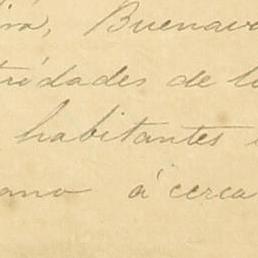 ra, Buenav
tridades de l
habitantes
ano á cerca